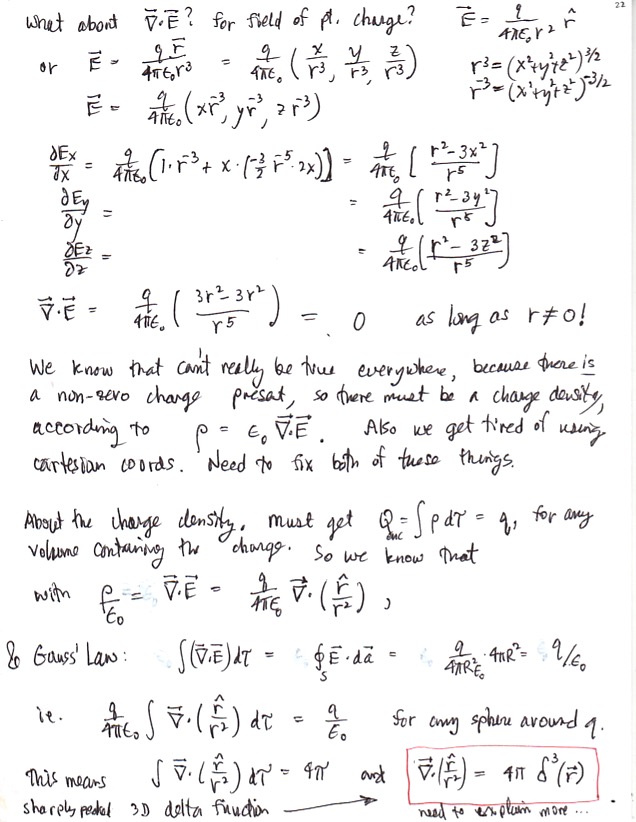 22
What about ∇⃗·E⃗? for field of pt. charge? E⃗ = q/(4πε₀r²) r̂
or E⃗ = q r⃗/(4πε₀r³) = q/(4πε₀) (x/r³, y/r³, z/r³) r³ = (x²+y²+z²)^(3/2)
E⃗ = q/(4πε₀) (xr⁻³, yr⁻³, zr⁻³) r⁻³ = (x²+y²+z²)^(-3/2)
∂Ex/∂x = q/(4πε₀) (1·r⁻³ + x·(-3/2 r⁻⁵·2x)] = q/(4πε₀) [(r²-3x²)/r⁵]
∂Ey/∂y = = q/(4πε₀) [(r²-3y²)/r⁵]
∂Ez/∂z = = q/(4πε₀) [(r²-3z²)/r⁵]
∇⃗·E⃗ = q/(4πε₀) ((3r²-3r²)/r⁵) = 0 as long as r≠0!
We know that can't really be true everywhere, because there is
a non-zero charge present, so there must be a charge density,
according to ρ = ε₀ ∇⃗·E⃗. Also we get tired of using
cartesian coords. Need to fix both of these things.
About the charge density, must get Q_enc = ∫ρ dτ = q, for any
volume containing the charge. So we know that
with ρ/ε₀ = ∇⃗·E⃗ = q/(4πε₀) ∇⃗·(r̂/r²),
& Gauss' Law: ∫(∇⃗·E⃗)dτ = ∮_S E⃗·da⃗ = q/(4πR²ε₀)·4πR² = q/ε₀
i.e. q/(4πε₀) ∫ ∇⃗·(r̂/r²) dτ = q/ε₀ for any sphere around q.
This means ∫ ∇⃗·(r̂/r²) dτ = 4π and ∇⃗·(r̂/r²) = 4π δ³(r⃗)
sharply peaked 3D delta function → need to explain more ...